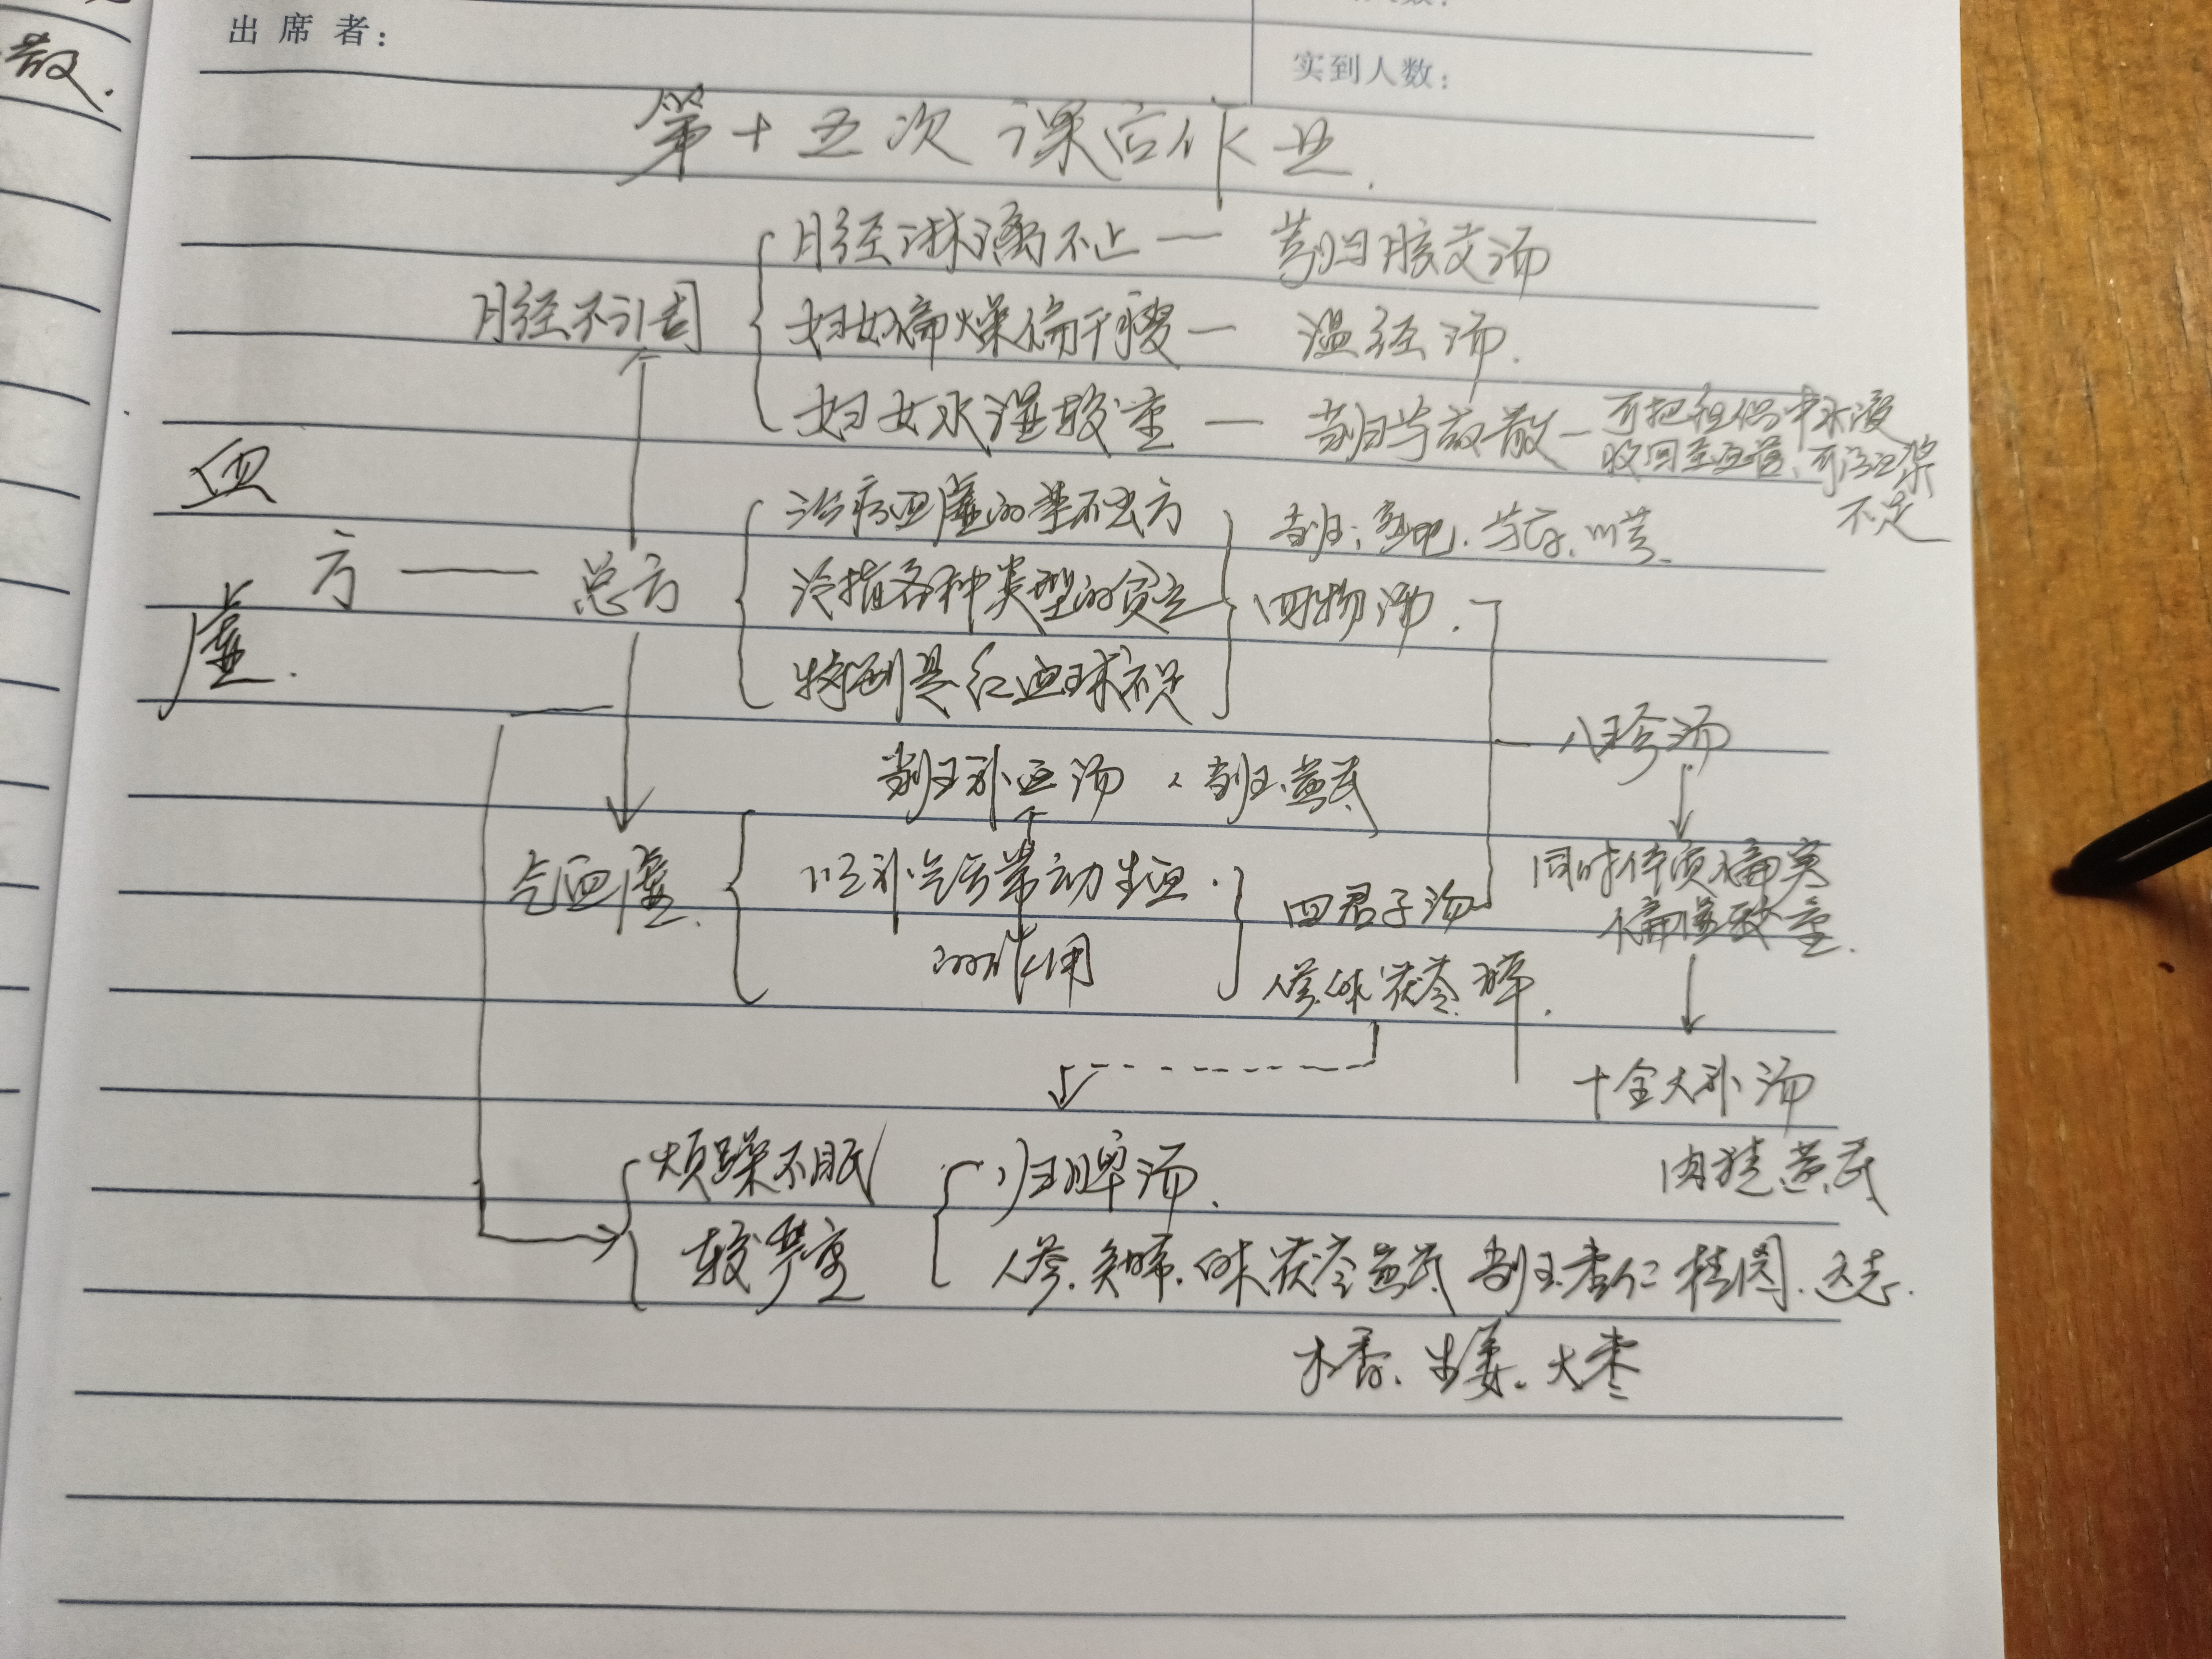 散.
出席者:
实到人数:
第十五次课后作业.
月经淋漓不止 — 芎归胶艾汤
月经不调
妇女偏燥偏干瘦 — 温经汤.
妇女水湿较重 — 当归芍药散 — 可把组织中水液
收回至血管,可治血浆
不足
血虚.
方 — 总方
治疗血虚的举不去方
当归:熟地.芍药.川芎.
冶指各种类型的贫血
四物汤.
特别是红血球不足
八珍汤
当归补血汤 : 当归.黄芪
气血虚.
以补气后带动生血.
的作用
四君子汤
人参.白术.茯苓.
同时
偏寒
偏虚较重.
十全大补汤
肉桂.黄芪
烦躁不眠
较严重
归脾汤.
人参.白术.茯苓.黄芪 当归.枣仁 桂圆.远志.
木香.生姜.大枣